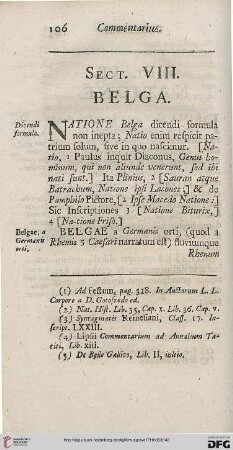 106 Commentarius.
SECT. VIII.
BELGA.
Dicendi
formula.
NATIONE Belga dicendi formula
non inepta; Natio enim respicit pa-
trium solum, sive in quo nascimur. [Na-
tio, 1 Paulus inquit Diaconus, Genus ho-
minum, qui non aliunde venerunt, sed ibi
nati sunt.] Ita Plinius, 2 [Sauran atque
Batrachum, Natione ipsi Lacones;] & de
Pamphilo Pictore, [2 Ipse Macedo Natione:]
Sic Inscriptiones 3 [Natione Biturix,]
4 [Natione Friso.]
Belgae, a
Germanis
orti.
BELGAE a Germanis orti, (quod a
Rhemis 5 Caesari narratum est) fluviumque
Rhenum
(1) Ad Festum, pag. 328. In Auctorum L. L.
Corpore a D. Gotofredo ed.
(2) Nat. Hist. Lib. 35, Cap. X. Lib. 36. Cap. V.
(3) Syntagmatis Reinesiani, Class. 17. In-
script. LXXIII.
(4) Lipsii Commentarium ad Annalium Ta-
citi, Lib. XIII.
(5) De Bello Gallico, Lib. II, initio.
UNIVERSITÄTS-
BIBLIOTHEK
HEIDELBERG
DFG